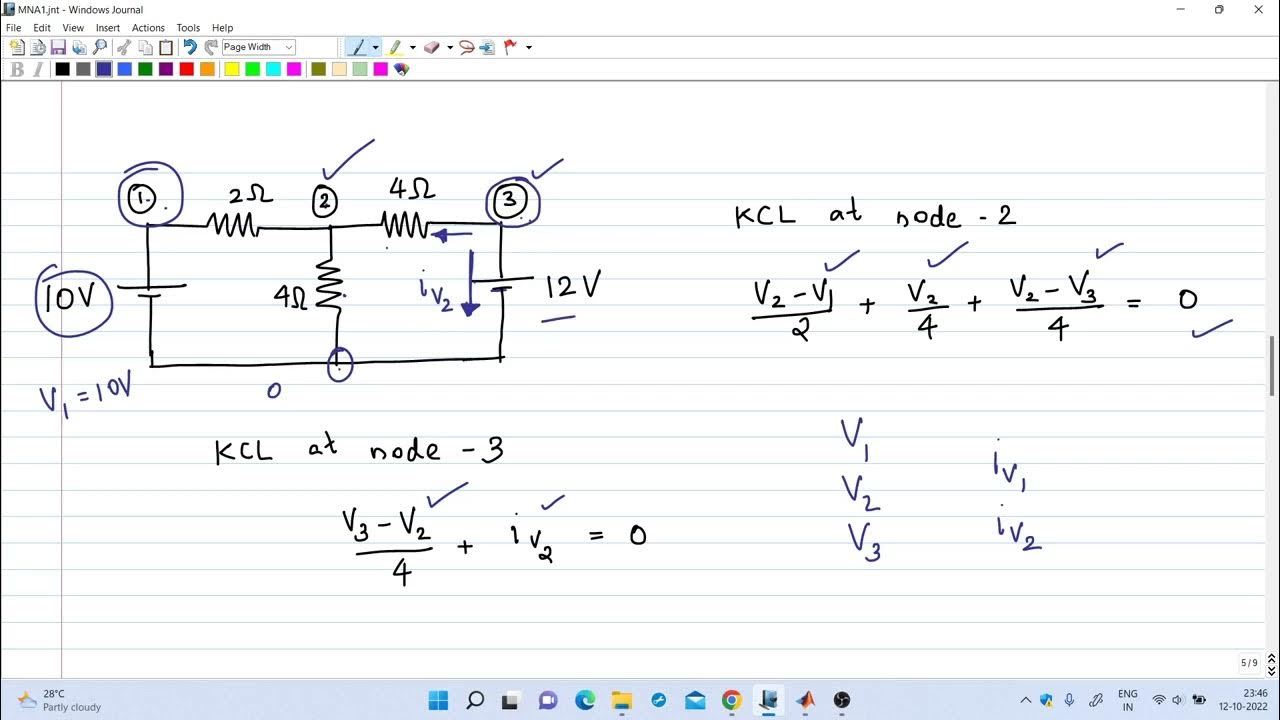 MNA1.jnt - Windows Journal
File Edit View Insert Actions Tools Help
Page Width
B I
1 2Ω 2 4Ω 3
10V 4Ω i_V2 12V
V1 = 10V 0
KCL at node - 2
(V2 - V1)/2 + V2/4 + (V2 - V3)/4 = 0
KCL at node - 3
(V3 - V2)/4 + i_V2 = 0
V1 i_V1
V2 i_V2
V3
5 / 9
28°C
Partly cloudy
ENG
IN
23:46
12-10-2022